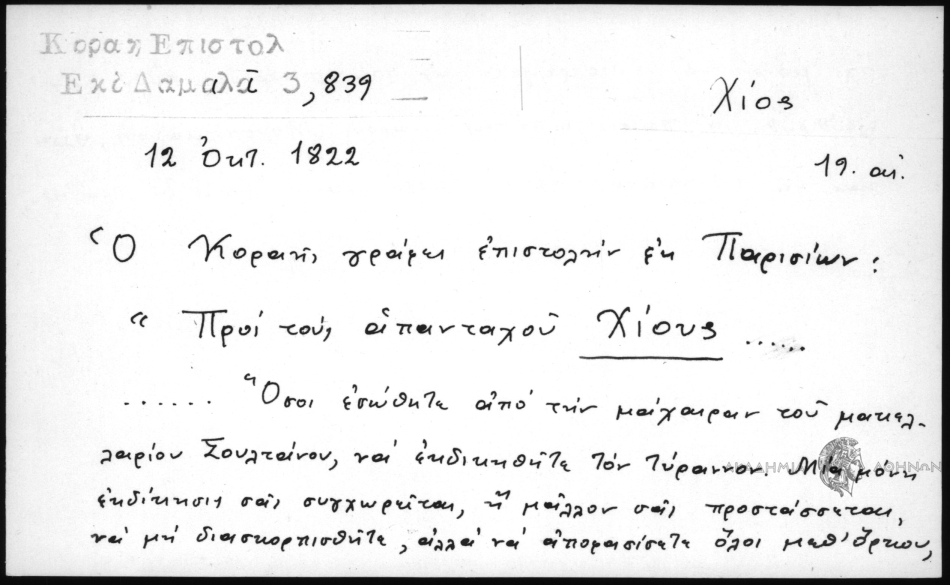 Κοραη Επιστολ
Εκδ Δαμαλᾶ 3,839
Χίος
12 Ὀκτ. 1822
19. αἰ.
Ὁ Κοραῆς γράφει ἐπιστολήν ἐκ Παρισίων:
"Πρός τούς ἁπανταχοῦ Χίους ......
...... Ὅσοι ἐσώθητε ἀπό τήν μάχαιραν τοῦ μακελ-
λαρίου Σουλτάνου, νά ἐκδικηθῆτε τόν τύραννον. Μία μόνη
ἐκδίκησις σᾶς συγχωρεῖται, ἤ μᾶλλον σᾶς προστάσσεται,
νά μή διασκορπισθῆτε, ἀλλά νά ἀποφασίσετε ὅλοι μεθ' ὅρκου,
ΑΚΑΔΗΜΙΑ ΑΘΗΝΩΝ